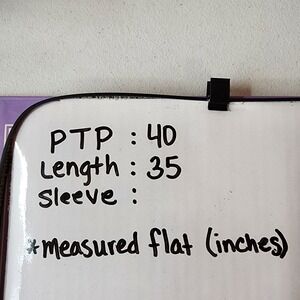 PTP : 40
Length : 35
Sleeve :
*measured flat (inches)